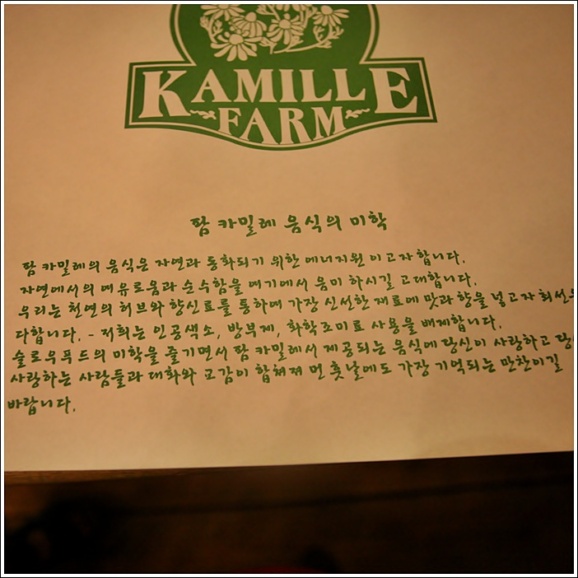 KAMILLE
FARM
팜 카밀레 음식의 미학
팜 카밀레의 음식은 자연과 동화되기 위한 에너지원 이고자합니다.
자연에서의 여유로움과 순수함을 여기에서 음미 하시길 고대합니다.
우리는 천연의 허브와 향신료를 통하여 가장 신선한 재료에 맛과 향을 넣고자 최선을
다합니다. - 저희는 인공색소, 방부제, 화학조미료 사용을 배제합니다.
슬로우푸드의 미학을 즐기면서 팜 카밀레에서 제공되는 음식에 당신이 사랑하고 당
사랑하는 사람들과 대화와 교감이 합쳐져 먼 훗날에도 가장 기억되는 만찬이길
바랍니다.